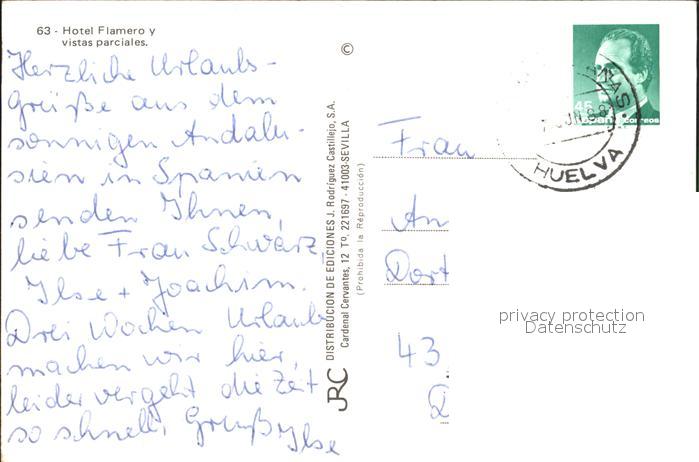 63 - Hotel Flamero y
vistas parciales.
Herzliche Urlaubs-
grüße aus dem
sonnigen Andalu-
sien in Spanien
senden Ihnen,
liebe Frau Schwarz,
Ilse + Joachim.
Drei Wochen Urlaub
machen wir hier,
leider vergeht die Zeit
so schnell, Gruß, Ilse
©
DISTRIBUCION DE EDICIONES J. Rodríguez Castillejo, S.A.
Cardenal Cervantes, 12 Tº. 221697 - 41003-SEVILLA
(Prohibida la Reproducción)
JRC
45
España correos
HUELVA
Frau
An
Dort
43
privacy protection
Datenschutz